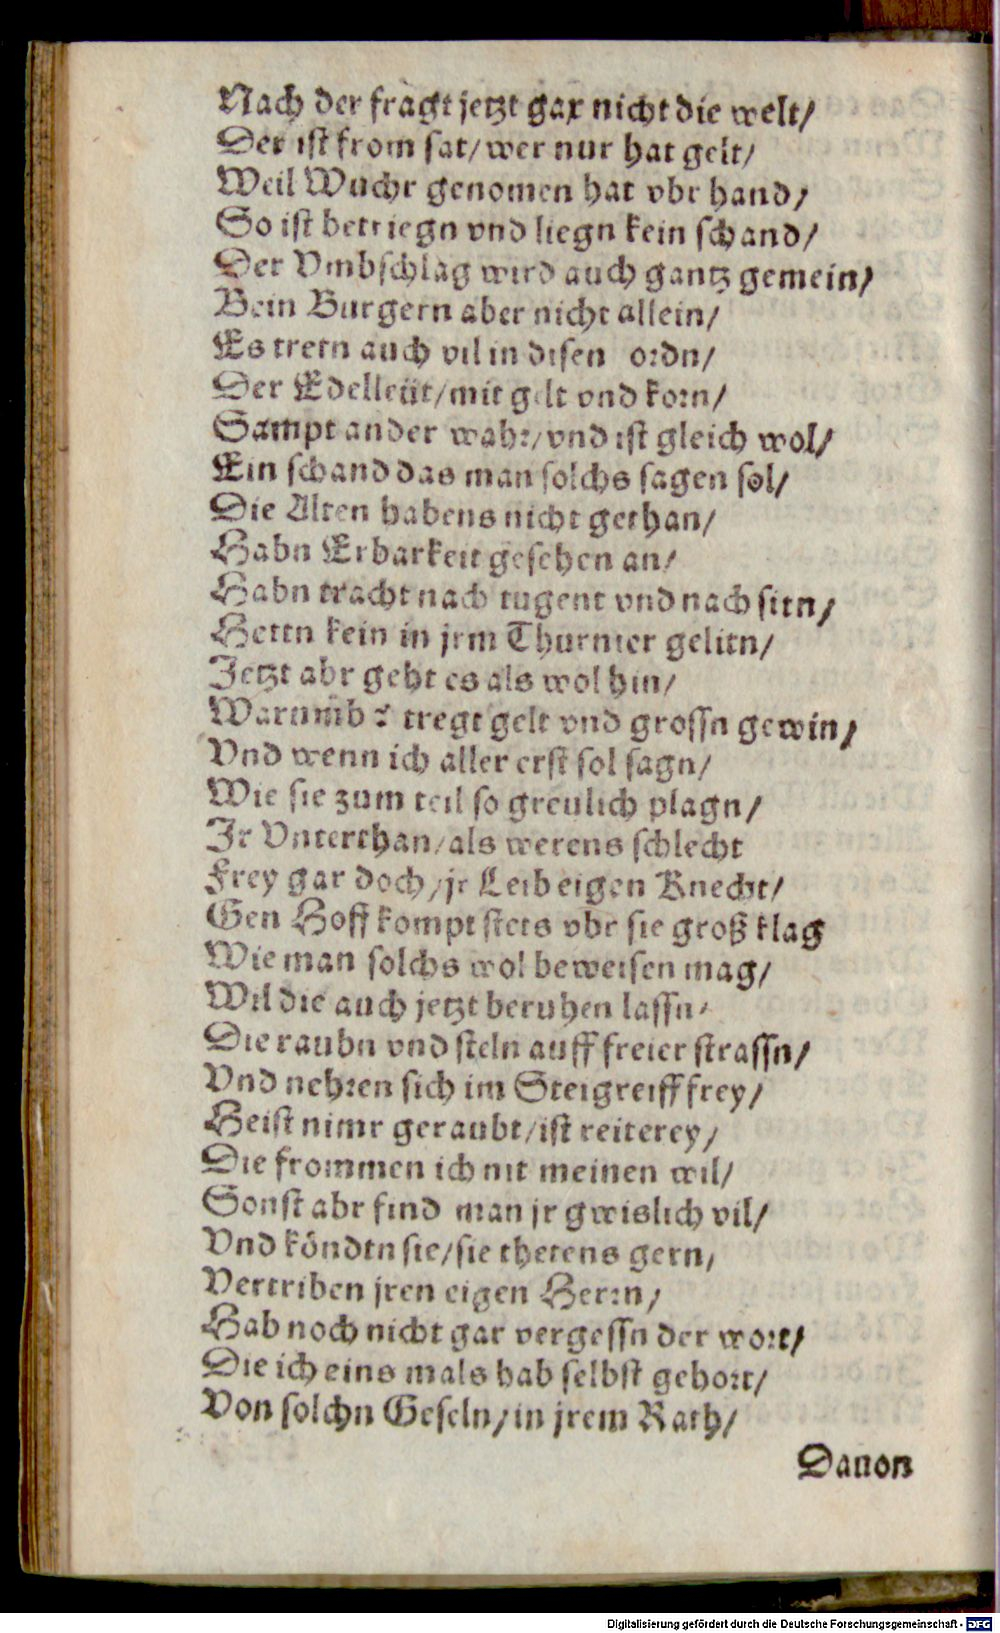 Nach der fragt jetzt gar nicht die welt/
Der ist from sat/ wer nur hat gelt/
Weil Wuchr genomen hat vbr hand/
So ist betriegn vnd liegn kein schand/
Der Vmbschlag wird auch gantz gemein/
Bein Burgern aber nicht allein/
Es tretn auch vil in disen ordn/
Der Edelleüt/ mit gelt vnd korn/
Sampt ander wahr/ vnd ist gleich wol/
Ein schand das man solchs sagen sol/
Die Alten habens nicht gethan/
Habn Erbarkeit gesehen an/
Habn tracht nach tugent vnd nach sitn/
Hettn kein in jrm Thurnier gelitn/
Jetzt abr geht es als wol hin/
Warumb? tregt gelt vnd grossn gewin/
Vnd wenn ich aller erst sol sagn/
Wie sie zum teil so greulich plagn/
Jr Vnterthan/ als werens schlecht
Frey gar doch/ jr Leibeigen Knecht/
Gen Hoff kompt stets vbr sie groß klag
Wie man solchs wol beweisen mag/
Wil die auch jetzt beruhen lassn/
Die raubn vnd steln auff freier strassn/
Vnd nehren sich im Steigreiff frey/
Heist nimr geraubt/ ist reiterey/
Die frommen ich nit meinen wil/
Sonst abr find man jr gwislich vil/
Vnd köndtn sie/ sie thetens gern/
Vertriben jren eigen Herrn/
Hab noch nicht gar vergessn der wort/
Die ich eins mals hab selbst gehort/
Von solchn Geseln/ in jrem Rath/
Dauon
Digitalisierung gefördert durch die Deutsche Forschungsgemeinschaft - DFG